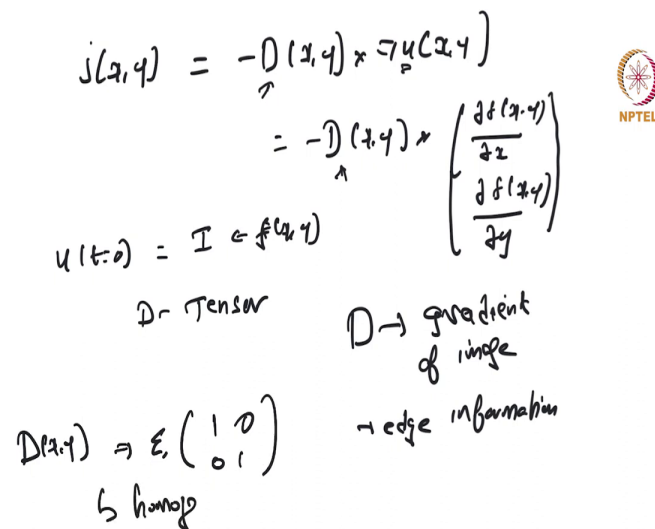 j(x,y) = -D(x,y) * ∇u(x,y)
= -D(x,y) * ( ∂f(x,y)/∂x
∂f(x,y)/∂y )
u(t=0) = I ← f(x,y)
D - Tensor
D → gradient
of image
→ edge information
D(x,y) ⇒ ε, ( 1 0
0 1 )
↳ homog
NPTEL